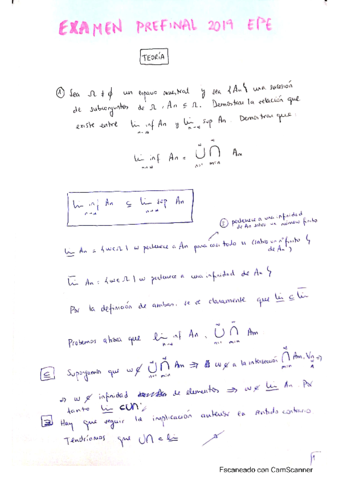 EXAMEN PREFINAL 2019 EPE
TEORÍA
① Sea Ω ≠ ∅ un espacio muestral y sea {An} una sucesión
de subconjuntos de Ω. An ⊆ Ω. Demostrar la relación que
existe entre lim inf An y lim sup An. Demostrar que:
lim inf An = ∪ ∩ Am
lim inf An ⊆ lim sup An
pertenece a una infinidad
de An salvo un número finito
lim An = {w∈Ω | w pertenece a An para casi todo
lim An = {w∈Ω | w pertenece a una infinidad de An}
Por la definición de ambas, se ve claramente que lim ⊆ lim
Probemos ahora que lim inf An = ∪ ∩ Am
⊆ Supongamos que w ∉ ∪ ∩ Am ⇒ w ∉ a la intersección ∩ Am
⇒ w ∉ infinidad de elementos ⇒ w ∉ lim An Por
tanto lim ⊂ ∪∩
⊇ Hay que seguir la implicación anterior en sentido contrario
Tendríamos que ∪∩ ⊂ lim
Escaneado con CamScanner